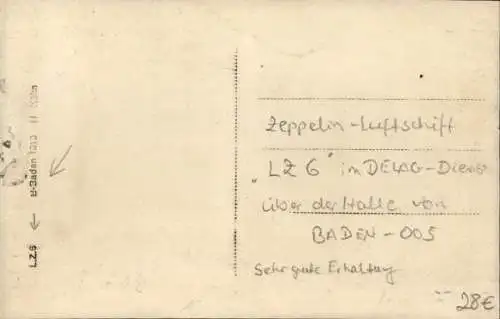 Zeppelin-Luftschiff
"LZ 6" im DELAG-Dienst
über der Halle von
BADEN-OOS
Sehr gute Erhaltung
28€
L.Z.6